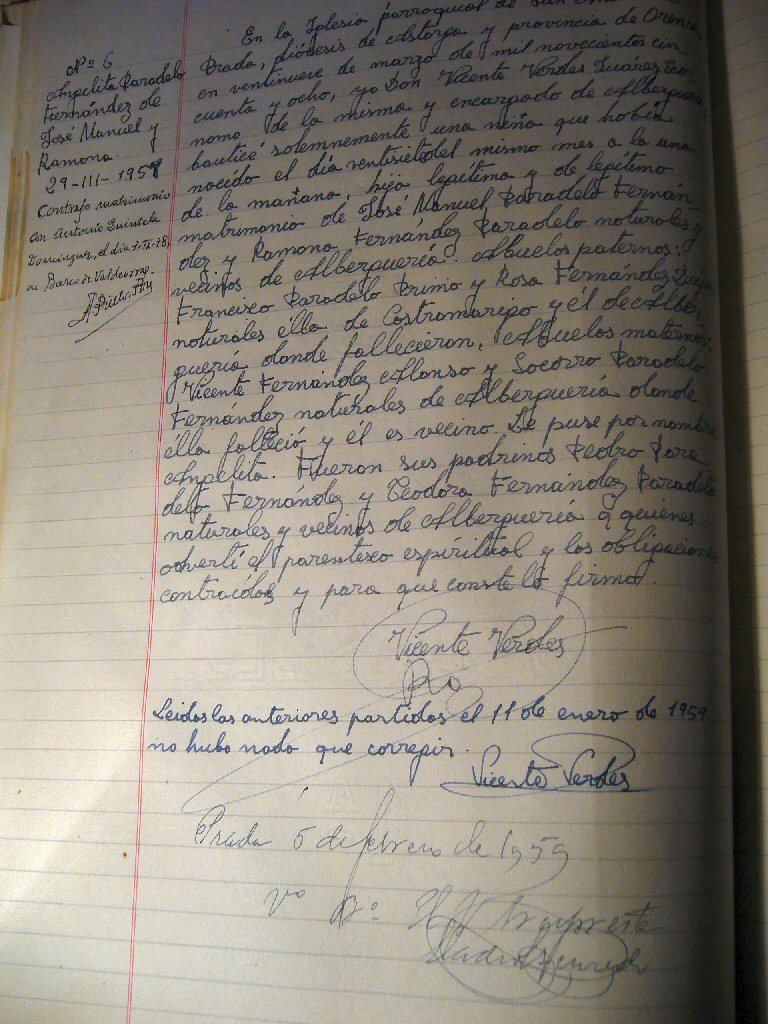 Nº 6
Angelita Paradelo
Fernández de
José Manuel y
Ramona.
29-III-1958
Contrajo matrimonio
con Antonio Quintela
Dominguez, el dia 78,
en Barco de Valdeorras.
En la Iglesia parroquial de San
Prada, diócesis de Astorga y provincia de Orense,
en ventinueve de marzo de mil novecientos cin
cuenta y ocho, yo Don Vicente Verdes Suárez Eco
nomo de la misma y encargado de Alberguería
bauticé solemnemente una niña que había
nacido el día ventisiete del mismo mes a la una
de la mañana, hija legítima y de legítimo
matrimonio de José Manuel Paradelo Fernán
dez y Ramona Fernández Paradelo naturales y
vecinos de Alberguería. Abuelos paternos:
Francisco Paradelo Primo y Rosa Fernández
naturales élla de Castromarigo y él de Alber
guería donde fallecieron, Abuelos maternos:
Vicente Fernández Alonso y Socorro Paradelo
Fernández naturales de Alberguería donde
élla falleció y él es vecino. Le puse por nombre
Angelita. Fueron sus padrinos Pedro Para
delo Fernández y Teodora Fernández Paradelo
naturales y vecinos de Alberguería a quienes
advertí el parentexo espíritual y las obligaciones
contraídas y para que conste lo firmo.
Vicente Verdes
Leidas las anteriores partidas el 11 de enero de 1959
no hubo nada que corregir.
Vicente Verdes
Prada 6 de febrero de 1959
Vº Bº El Arcipreste